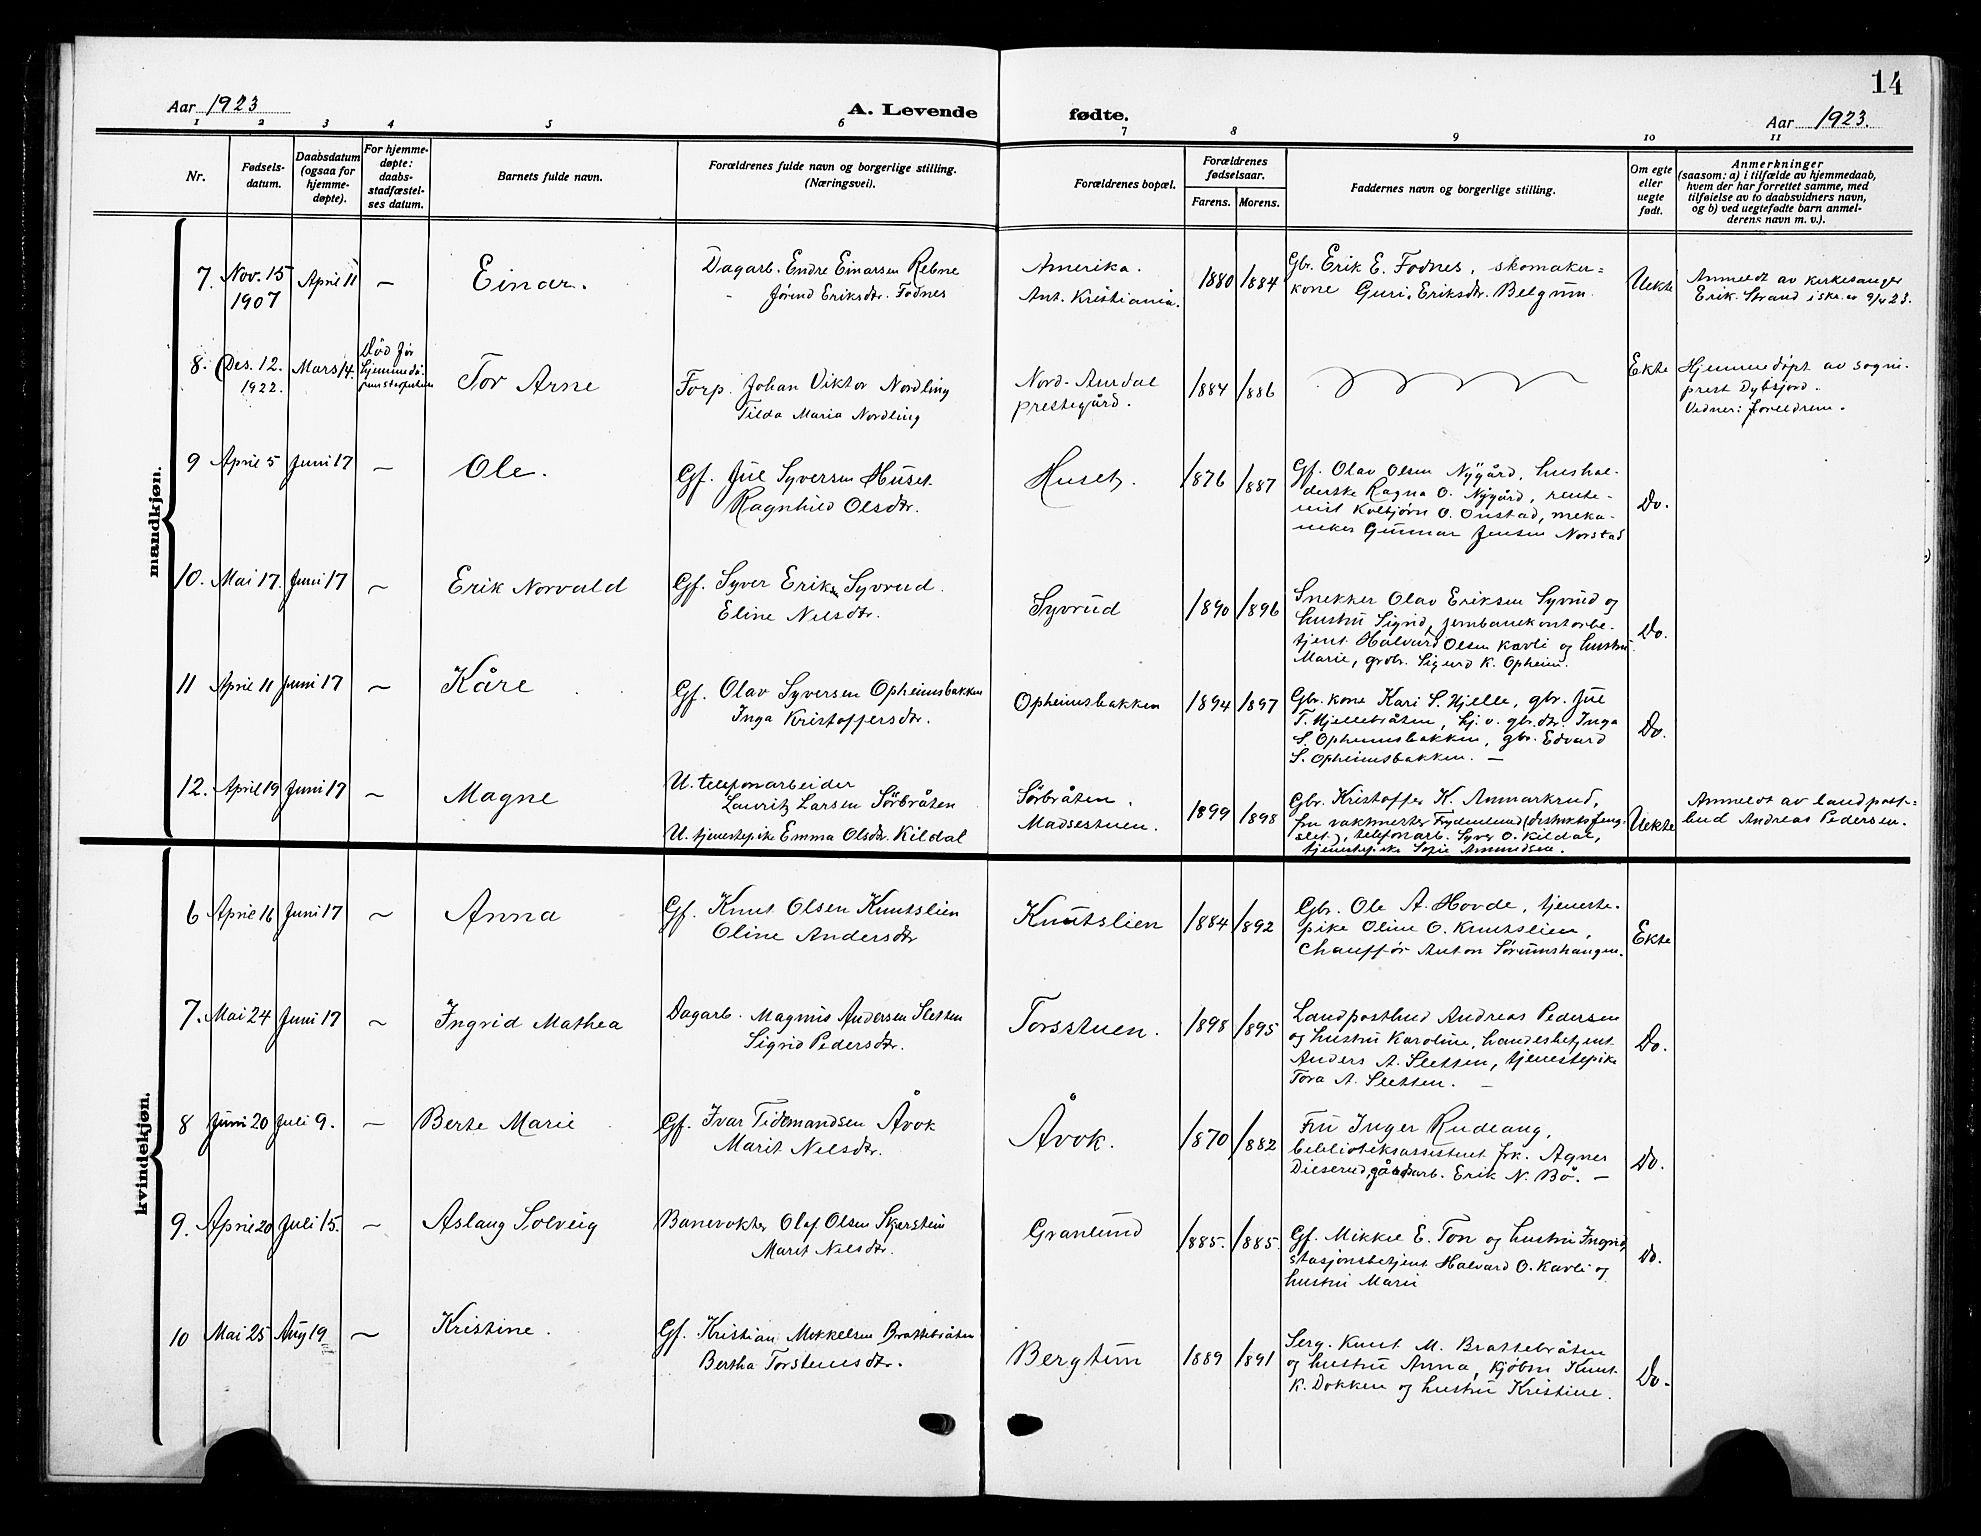 14
Aar 1923
A. Levende fødte.
Aar 1923.
1 2 3 4 5 6 7 8 9 10 11
Nr.
Fødsels-
datum.
Daabsdatum
(ogsaa for
hjemme-
døpte).
For hjemme-
døpte:
daabs-
stadfæstel-
ses datum.
Barnets fulde navn.
Forældrenes fulde navn og borgerlige stilling.
(Næringsvei).
Forældrenes bopæl.
Forældrenes
fødselsaar.
Farens. Morens.
Faddernes navn og borgerlige stilling.
Om egte
eller
uegte
født.
Anmerkninger
(saasom: a) i tilfælde av hjemmedaab,
hvem der har forrettet samme, med
tilføielse av to daabsvidners navn,
og b) ved uegtefødte barn anmel-
derens navn m. v.).
mandkjøn.
7. Nov. 15
1907
April 11
–
Einar.
Dagarb. Endre Einarsen Rebne
– Jørind Eriksdtr. Fodnes
Amerika.
Ant. Kristiania.
1880 1884
Gbr. Erik E. Fodnes, skomaker=
kone Guri Eriksdtr. Belgum.
Uekte
Anmeldt av kirkesanger
Erik Strand i skr. av 9/4 23.
8. Des. 12.
1922.
Mars 14.
Død før
hjemmedå-
Tor Arne
Forp. Johan Viktor Nordling
Tilda Maria Nordling
Nord-Aurdal
prestegård.
1884 1886
Ekte
Hjemmedøpt av sogne-
prest Dybsjord.
Vidner: foreldrene.
9 April 5 Juni 17 –
Ole.
Gf. Jul Syversen Huset
Ragnhild Olsdtr.
Huset.
1876 1887
Gf. Olav Olsen Nygård, hushol-
derske Ragna O. Nygård, rente-
nist Kolbjørn O. Onstad, meka-
niker Gunnar Jensen Norstad
Do.
10. Mai 17. Juni 17 –
Erik Norvald
Gf. Syver Eriks. Syvrud.
Eline Nilsdtr.
Syvrud
1890 1896
Snekker Olav Eriksen Syvrud og
hustru Sigrid, jernbanekontorbe-
tjent Halvard Olsen Kavli og hustru
Marie, grdbr. Sigurd K. Opheim.
Do.
11 April 11 Juni 17 –
Kåre
Gf. Olav Syversen Opheimsbakken
Inga Kristoffersdtr.
Opheimsbakken
1894 1897
Gbr. kone Kari S. Hjelle, gbr. Jul
T. Hjellebråten, hj. v. gbr.dtr. Inga
S. Opheimsbakken, gbr. Edvard
S. Opheimsbakken. –
Do.
12. April 19 Juni 17 –
Magne
U. telefonarbeider
Lauritz Larsen Sörbråten
U. tjenestepike Emma Olsdtr. Kildal
Sörbråten.
Madsestuen.
1899 1898
Gbr. Kristoffer K. Anmarkrud,
fru vaktmester Frydenlund (distriktsfeng-
slet), telefonarb. Syver O. Kildal,
tjenestepike Sofie Amundsen.
Uekte
Anmeldt av landpost-
bud Andreas Pedersen.
kvindekjøn.
6 April 16 Juni 17 –
Anna
Gf. Knut Olsen Knutslien
Oline Andersdtr
Knutslien
1884 1892
Gbr. Ole A. Hovde, tjeneste-
pike Oline O. Knutslien,
chauffør Anton Sørumshaugen.
Ekte
7. Mai 24 Juni 17 –
Ingrid Mathea
Dagarb. Magnus Andersen Sletten
Sigrid Pedersdtr.
Torsstuen.
1898 1895
Landpostbud Andreas Pedersen
og hustru Karoline, handesbetjent
Anders A. Sletten, tjenestepike
Tora A. Sletten. –
Do.
8 Juni 20 Juli 9. –
Berte Marie
Gf. Ivar Tidemandsen Åvok
Marit Nilsdtr.
Åvok.
1870 1882
Fru Inger Rudeang,
biblioteksassistent frk. Agnes
Dieserud, gårdsarb. Erik N. Bö. –
Do.
9. April 20 Juli 15. –
Aslaug Solveig
Banevokter Olaf Olsen Skjerstein
Marit Nilsdtr.
Granlund
1885. 1885.
Gf. Mikkel E. Ton og hustru Ingrid,
stasjonsbetjent Halvard O. Kavli og
hustru Marie
Do.
10 Mai 25 Aug 19 –
Kristine.
Gf. Kristian Mikkelsen Brattebråten
Bertha Torsteinsdtr.
Bergtun
1889 1891
Serg. Knut M. Brattebråten
og hustru Anna, kjøbm Knut
K. Dokken og hustru Kristine.
Do.